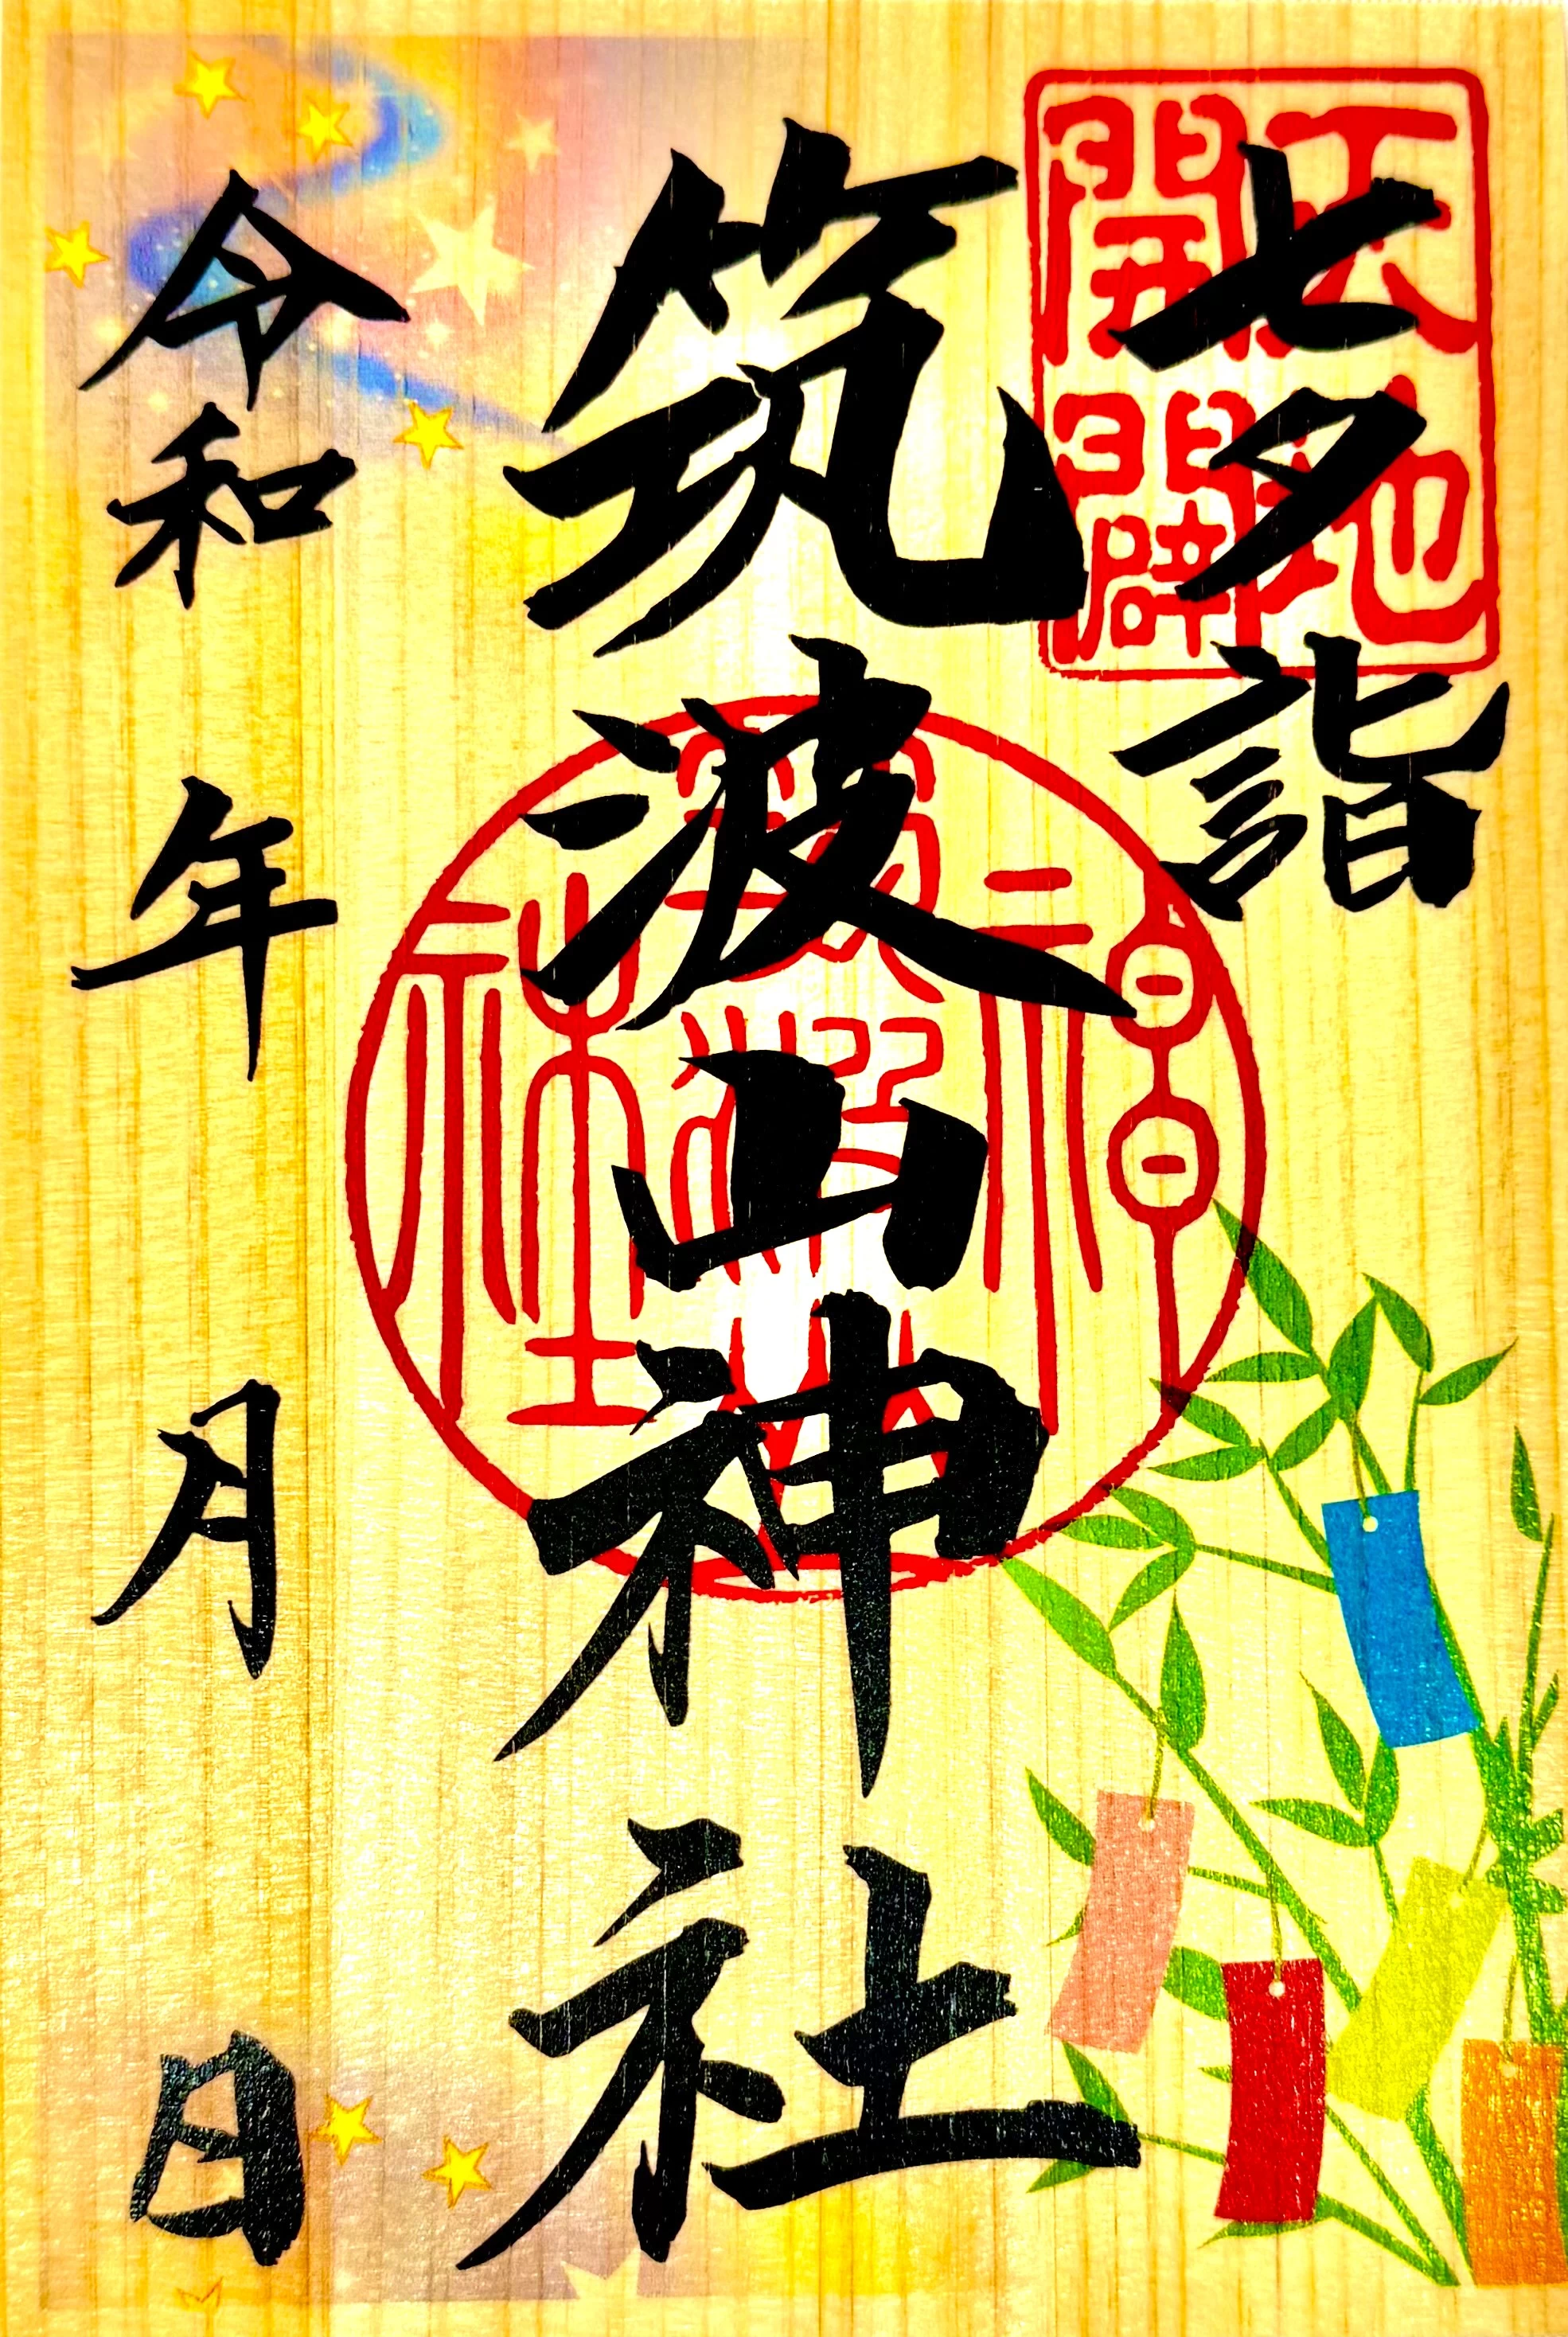 七夕詣
天地
開闢
筑波山神社
筑波山
神社
令和 年 月 日